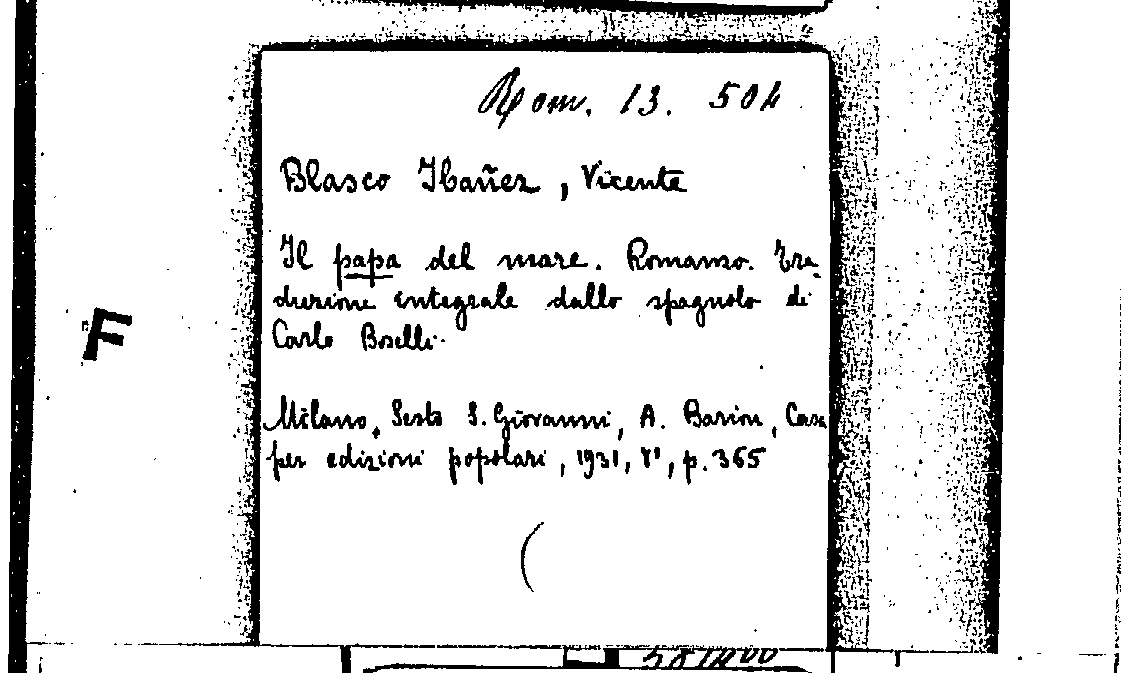 Rom. 13. 504
Blasco Ibañez, Vicente
Il papa del mare. Romanzo. Tra-
duzione integrale dallo spagnolo di
Carlo Boselli.
F
Milano, Sesto S. Giovanni, A. Barion, Casa
per edizioni popolari, 1931, 8°, p. 365
(